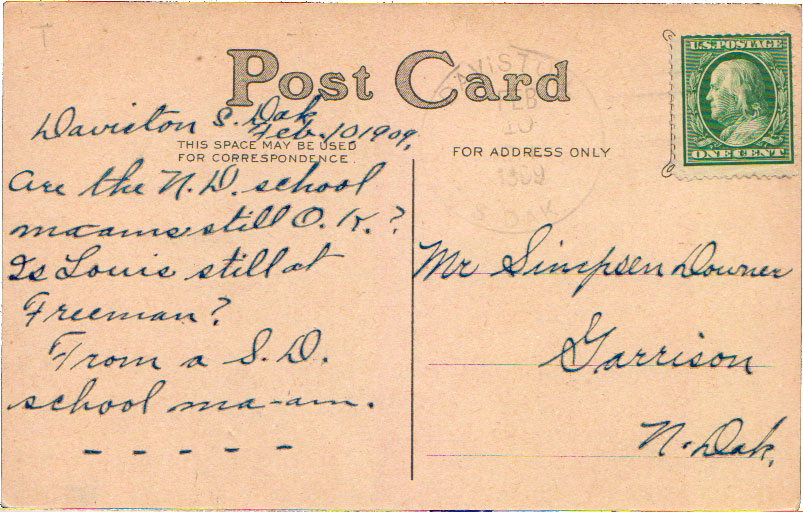 Post Card
Daviston S. Dak
Feb. 10 1909.
THIS SPACE MAY BE USED
FOR CORRESPONDENCE.
FOR ADDRESS ONLY
Are the N.D. school
ma-ams still O.K.?
Is Louis still at
Freeman?
From a S.D.
school ma-am.
- - - - -
U.S. POSTAGE
ONE CENT
FEB
10
1909
S. DAK
Mr Simpsen Downer
Garrison
N. Dak.